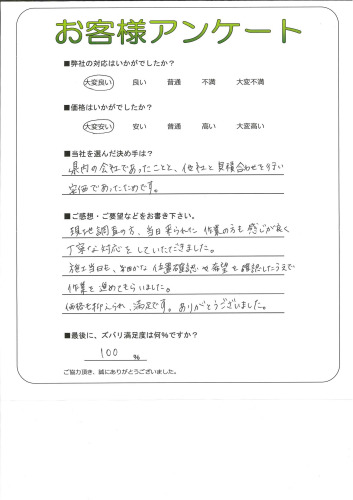 お客様アンケート
■弊社の対応はいかがでしたか？
大変良い 良い 普通 不満 大変不満
■価格はいかがでしたか？
大変安い 安い 普通 高い 大変高い
■当社を選んだ決め手は？
県内の会社であったことと、他社と見積合わせを行い
安価であったためです。
■ご感想・ご要望などをお書き下さい。
現地調査の方、当日来られた作業の方も感じが良く
丁寧な対応をしていただきました。
施工当日も、細かな位置確認や希望を確認したうえで
作業を進めてもらいました。
価格も抑えられ、満足です。ありがとうございました。
■最後に、ズバリ満足度は何％ですか？
100 %
ご協力頂き、誠にありがとうございました。